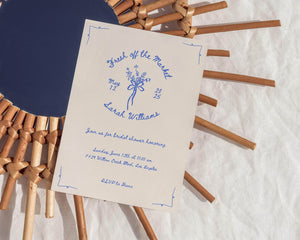 Fresh off the Market
May 25
12 25
Sarah Williams
Join us for bridal shower honoring
Sunday, June 12th, at 11:30 am
Willow Creek Blvd, Los Angeles
RSVP to